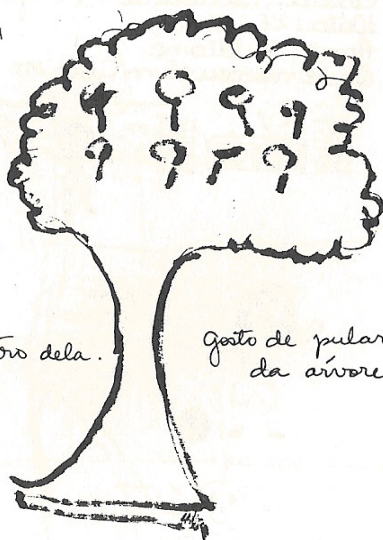 dela.
gosto de pular
da árvore